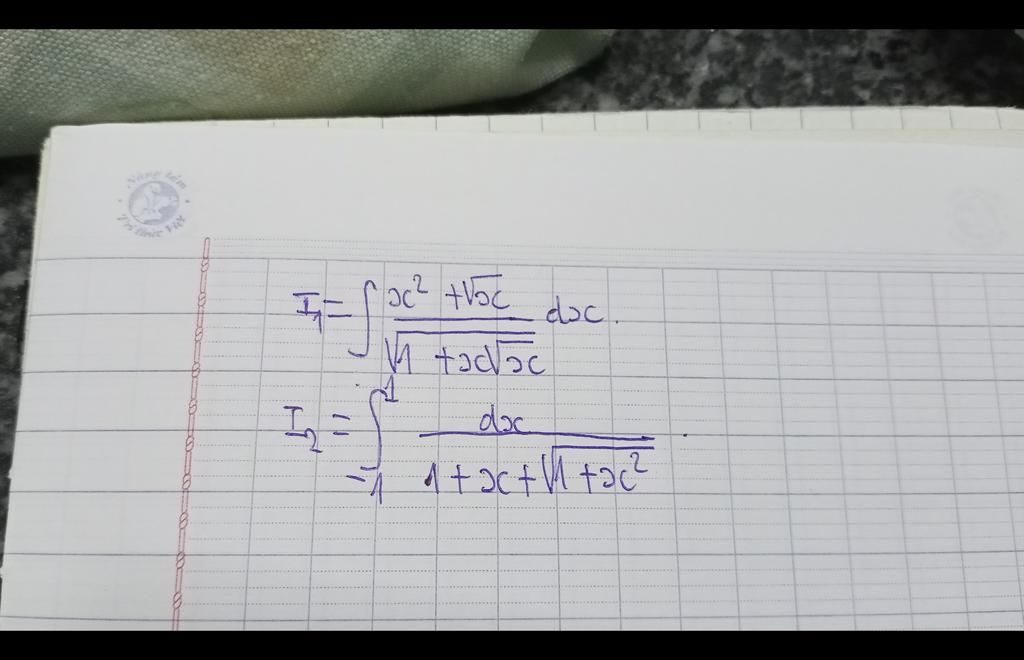 Nâng tầm
Tri thức Việt
I₁ = ∫ (x² + √x) / √(1 + x√x) dx.
I₂ = ∫₋₁¹ dx / (1 + x + √(1 + x²)).